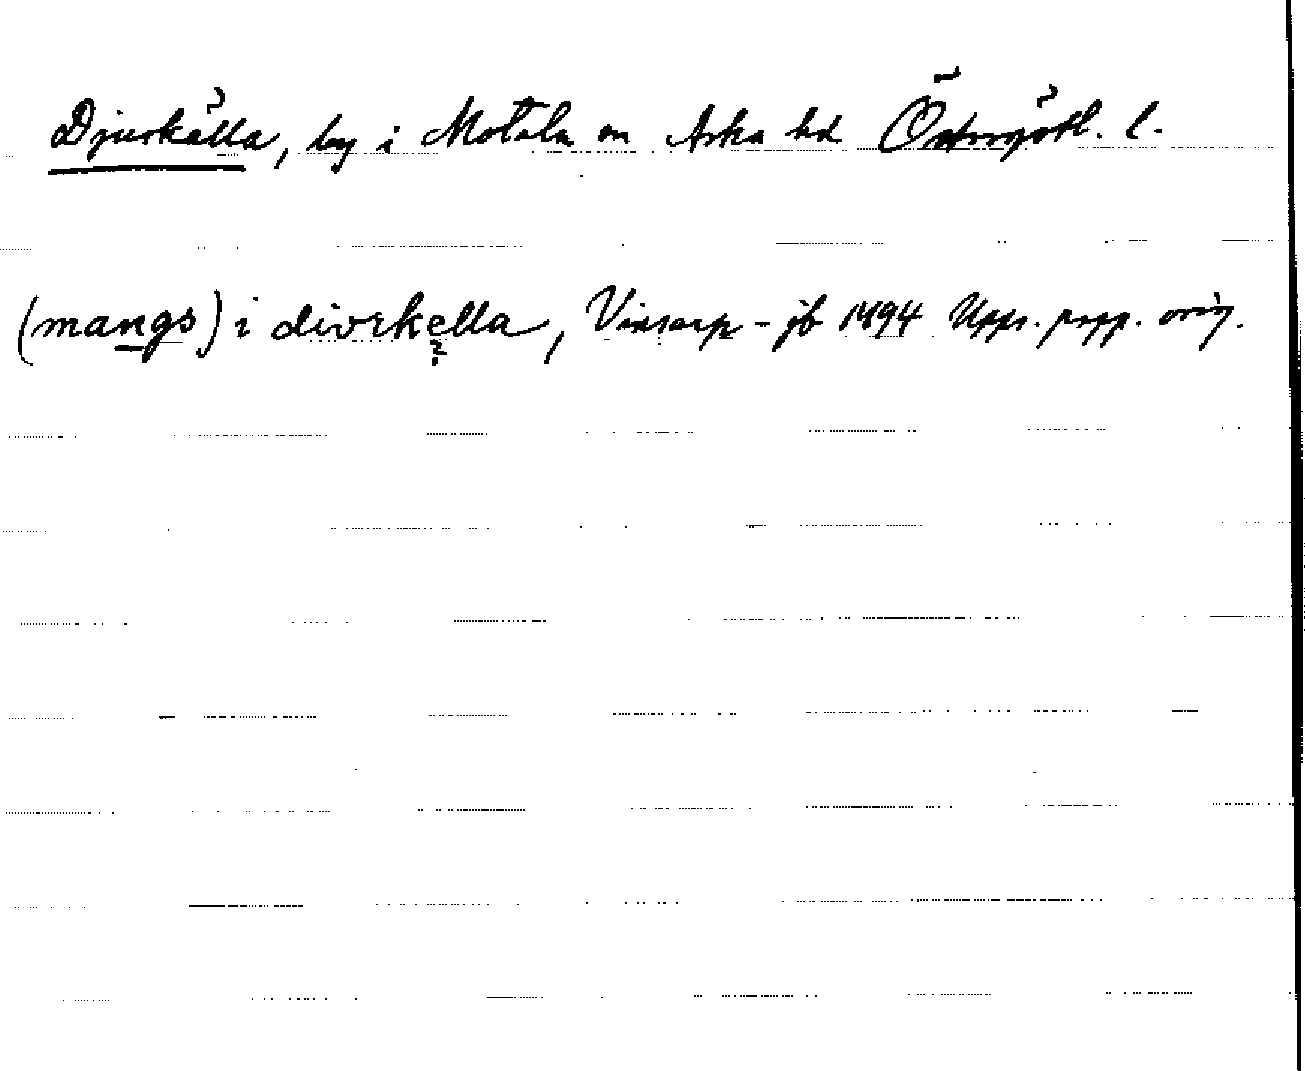 Djurkälla, by i Motala sn Aska hd Östergötl. l.
(mangs) i divrkella, Vinsarp-jb 1494 Upps. papp. orig.